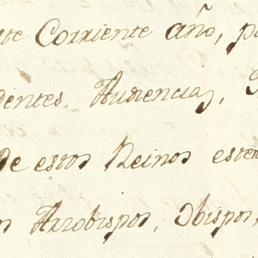 te Corriente año, p
dentes, Audiencias,
De estos Reinos esten
n Arzobispos, Obispos,